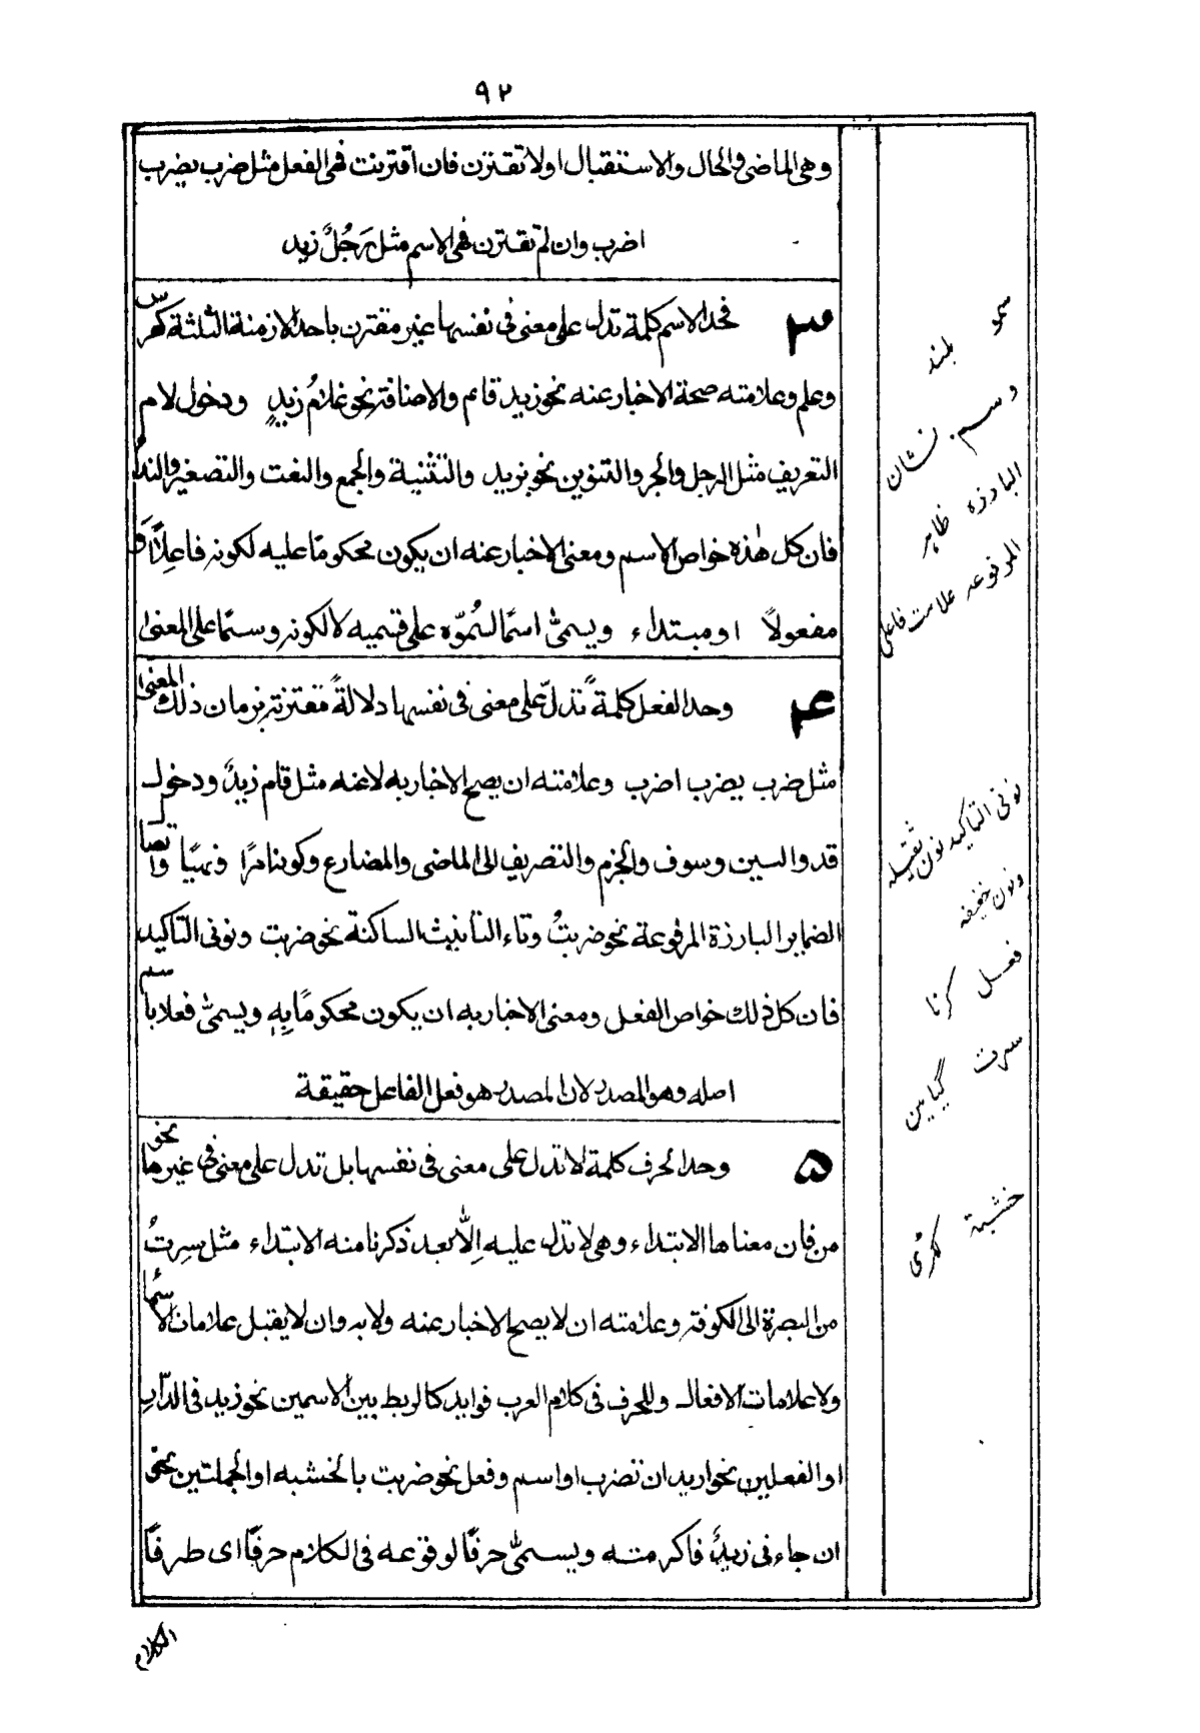 ۹۲
وهی الماضی والحال والاستقبال اولا تقترن فان اقترنت فهی الفعل مثل ضرب یضرب
اضرب وان لم تقترن فهی الاسم مثل رَجُلٌ زید
۳ فحد الاسم کلمة تدل علی معنی فی نفسها غیر مقترن باحد الازمنة الثلثة کفرس
وعلم وعلامته صحة الاخبار عنه نحو زید قائم والاضافة نحو غلامُ زیدٍ ودخول لام
التعریف مثل الرجل والجر والتنوین نحو بزید والتثنیة والجمع والنعت والتصغیر والندا
فان کل هٰذه خواص الاسم ومعنی الاخبار عنه ان یکون محکومًا علیه لکونه فاعلًا او
مفعولًا او مبتداء ویسمّٰی اسمًا لسُموّه علی قسمیه لا لکونه وسمًا علی المعنیٰ
۴ وحد الفعل کلمةٌ تدلّ علی معنی فی نفسها دلالةً مقترنة بزمان ذلك المعنیٰ
مثل ضرب یضرب اضرب وعلامته ان یصح الاخبار به لا عنه مثل قام زیدٌ ودخول
قد والسین وسوف والجزم والتصریف الی الماضی والمضارع وکونه امرًا ونهیًا واتصا
الضمایر البارزة المرفوعة نحو ضربتُ وتاء التانیث الساکنة نحو ضربت ونونی التاکید
فان کل ذلك خواص الفعل ومعنی الاخبار به ان یکون محکومًا بِهٖ ویسمّٰی فعلا باسم
اصله وهو المصدر لان المصدر هو فعل الفاعل حقیقة
۵ وحد الحرف کلمة لا تدل علی معنی فی نفسها بل تدل علی معنی فی غیرها نحو
من فان معناها الابتداء وهی لا تدل علیه اِلّا بعد ذکر ما منه الابتداء مثل سِرتُ
من البصرة الی الکوفة وعلامته ان لا یصح الاخبار عنه ولا به وان لا یقبل علامات الاسما
ولا علامات الافعال وللحرف فی کلام العرب فواید کالربط بین الاسمین نحو زید فی الدّارِ
او الفعلین نحو ارید ان تضرب او اسم وفعل نحو ضربت بالخشبه او الجملتین نحو
ان جاءنی زیدٌ فاکرمته ویسمّٰی حرفًا لوقوعه فی الکلام حرفًا ای طرفًا
الکلام
سمو بلند
وسم نشان
البارزه ظاہر
المرفوعه علامت فاعل
نونی التاکید نون ثقیله
ونون خفیفه
فعل کرنا
سرت گیا مین
خشبة لکڑی